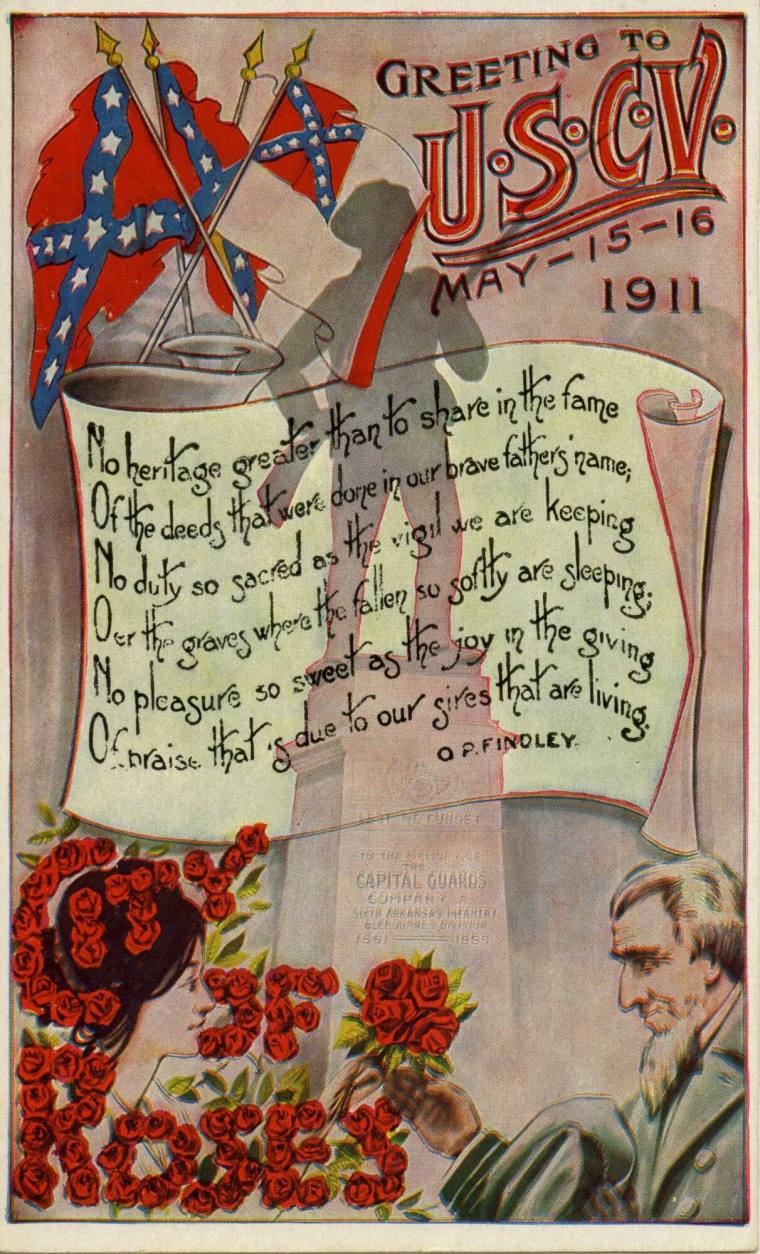 GREETING TO
U·S·C·V·
MAY-15-16
1911
No heritage greater than to share in the fame
Of the deeds that were done in our brave fathers' name;
No duty so sacred as the vigil we are keeping
Oer the graves where the fallen so softly are sleeping;
No pleasure so sweet as the joy in the giving
Of praise that's due to our sires that are living.
O P. FINDLEY.
LEST WE FORGET
TO THE MEMORY OF
THE
CAPITAL GUARDS
COMPANY A
SIXTH ARKANSAS INFANTRY
CLEBURNES DIVISION
1861 1865
CITY
OF
ROSES